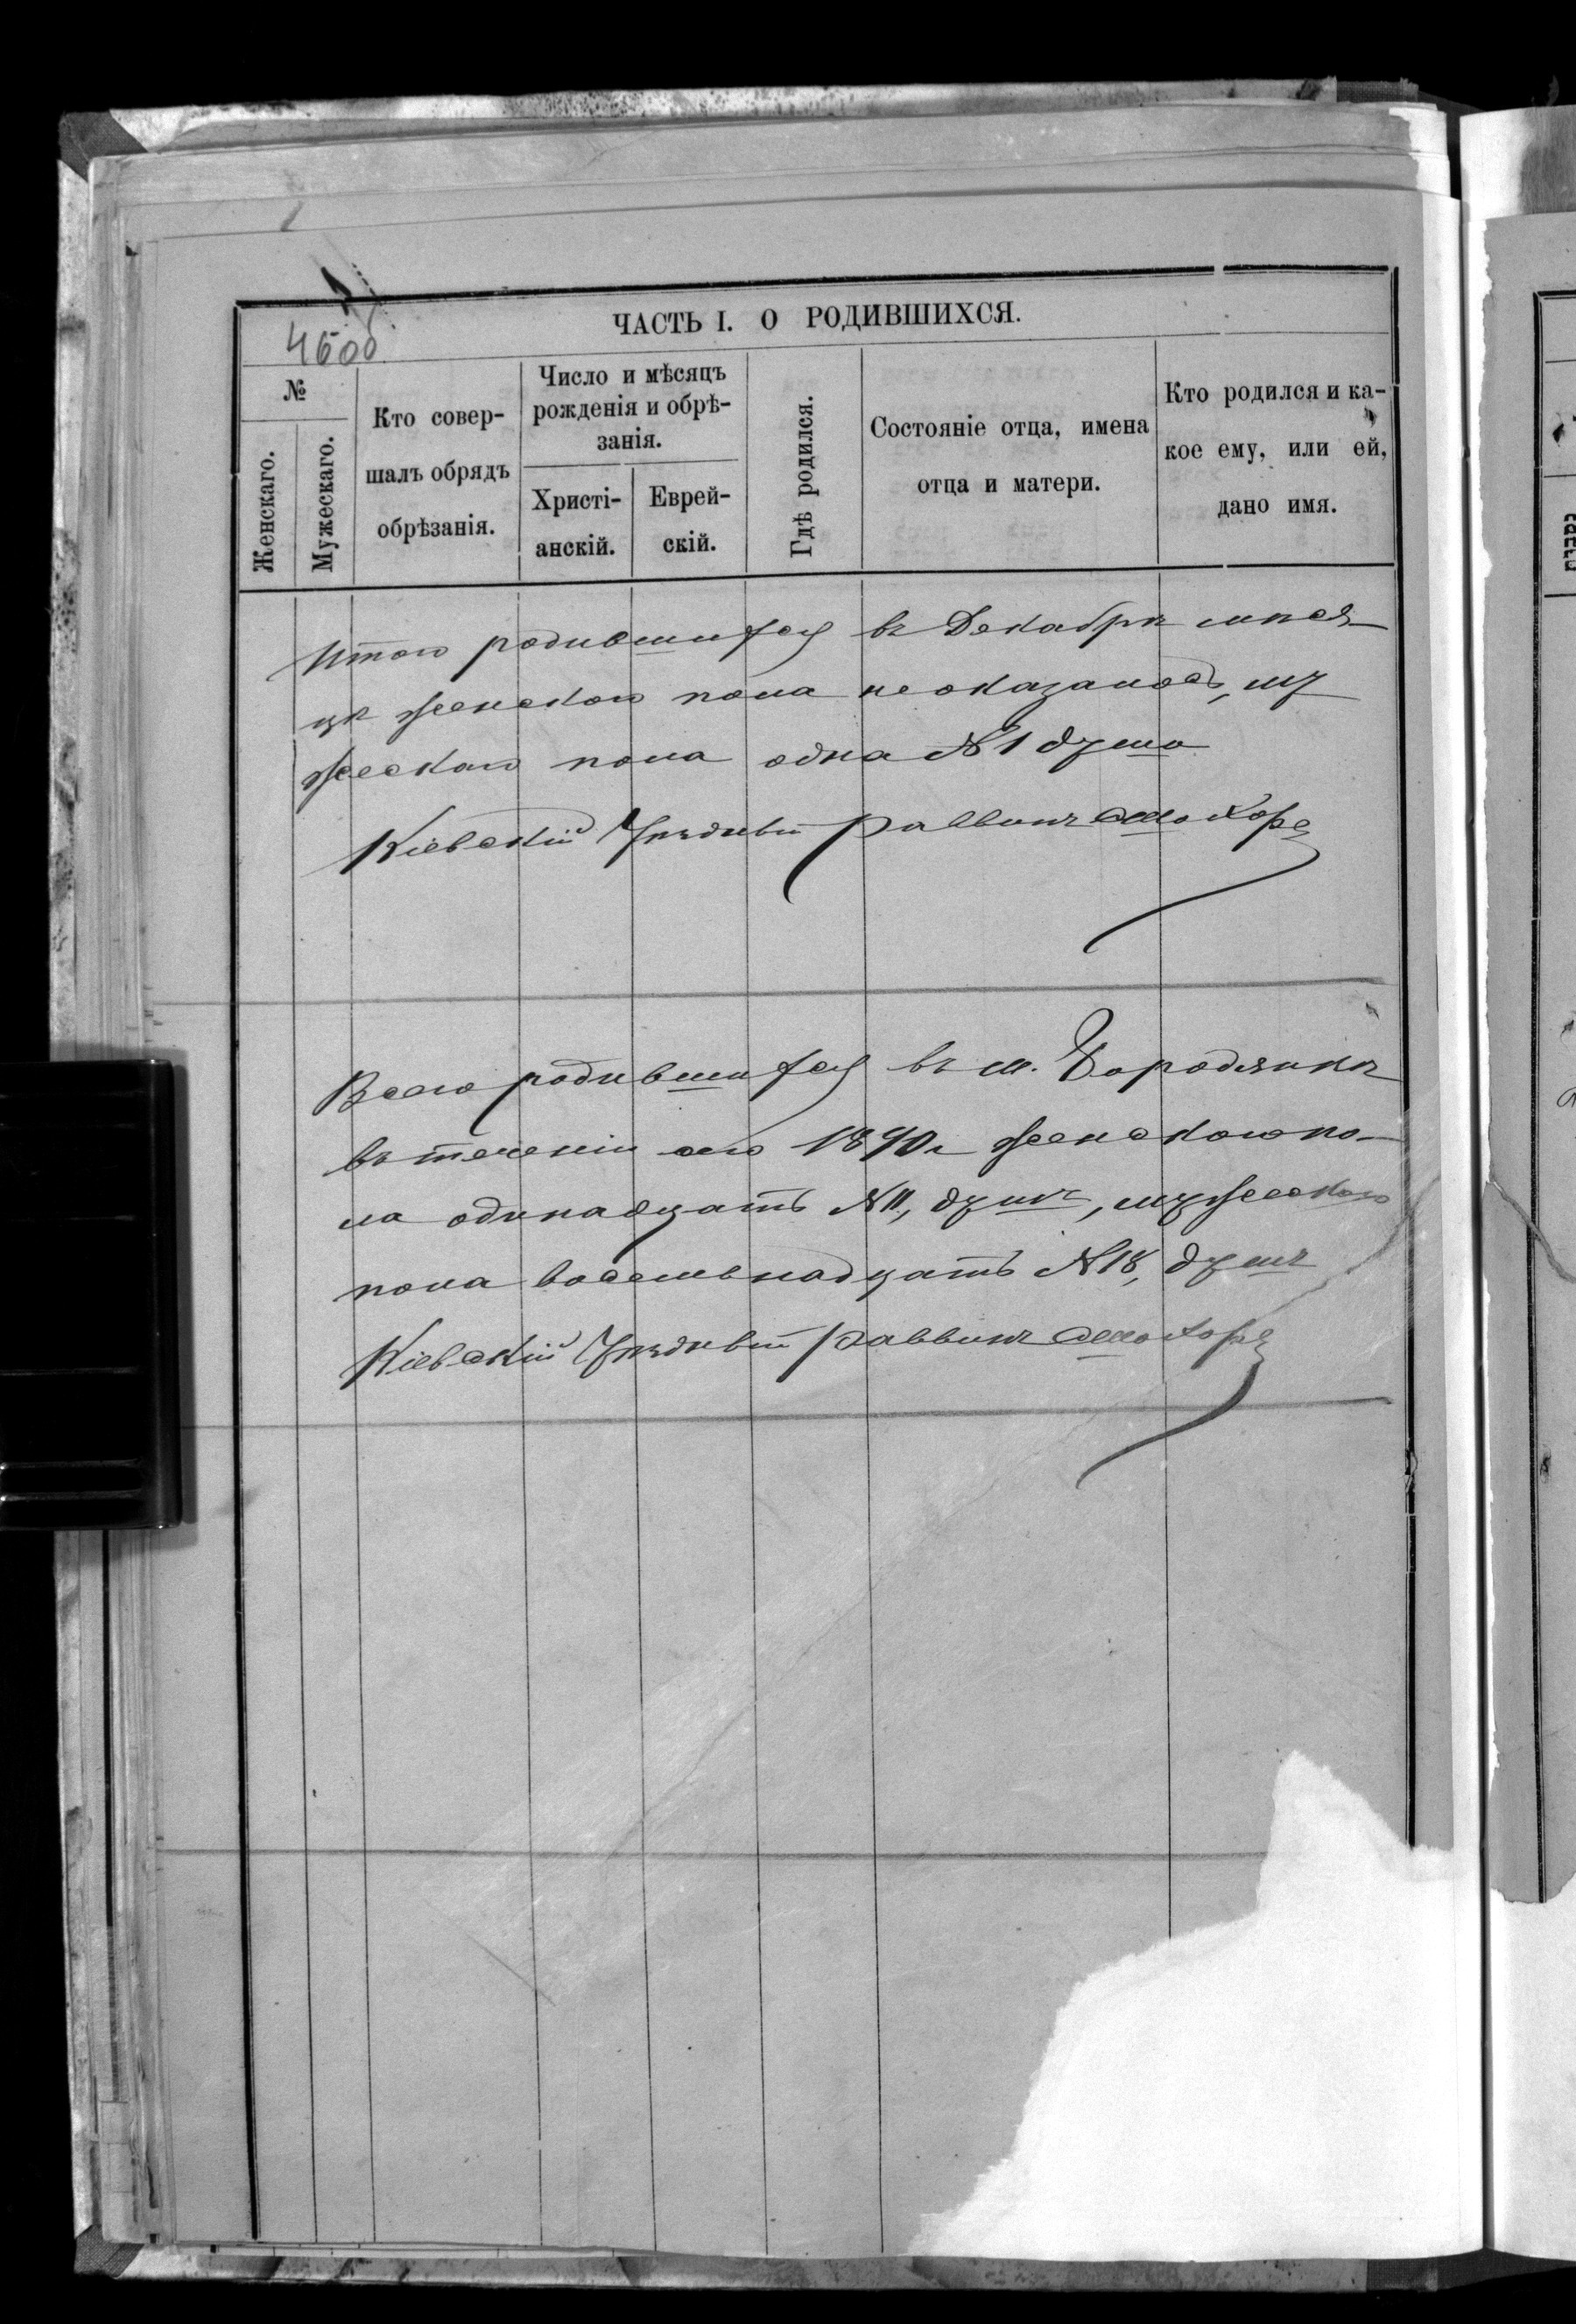 ЧАСТЬ I. О РОДИВШИХСЯ.
460об
№
Женскаго.
Мужескаго.
Кто совер-
шалъ обрядъ
обрѣзанія.
Число и мѣсяцъ
рожденія и обрѣ-
занія.
Христі-
анскій.
Еврей-
скій.
Гдѣ родился.
Состояніе отца, имена
отца и матери.
Кто родился и ка-
кое ему, или ей,
дано имя.
Итого родившихся въ Декабрѣ мѣся-
цѣ женскаго пола не оказалось, му
жескаго пола одна №1 душа
Кіевскій Уѣздный Раввинъ
Всего родившихся въ м. Бородянкѣ
въ теченіи сего 1890 г. женскаго по-
ла одинадцать №11, душъ, мужескаго
пола восемьнадцать №18, душъ
Кіевскій Уѣздный Раввинъ